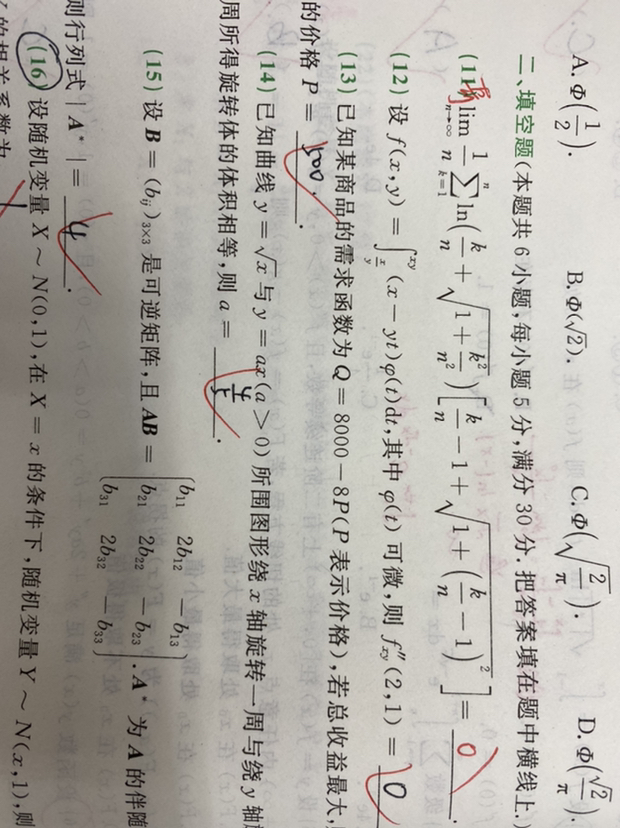 A. Φ(1/2). B. Φ(√2). C. Φ(√(2/π)). D. Φ(√2/π).
二、填空题(本题共6小题,每小题5分,满分30分.把答案填在题中横线上.)
(11) lim_{n→∞} 1/n ∑_{k=1}^{n} ln(k/n + √(1 + k²/n²)) [k/n − 1 + √(1 + (k/n − 1)²)] = 0.
(12) 设 f(x,y) = ∫_{x/y}^{xy} (x − yt)φ(t)dt,其中 φ(t) 可微,则 f''_{xy}(2,1) = 0
(13) 已知某商品的需求函数为 Q = 8000 − 8P(P 表示价格),若总收益最大,
的价格 P = 500.
(14) 已知曲线 y = √x 与 y = ax(a > 0) 所围图形绕 x 轴旋转一周与绕 y 轴
周所得旋转体的体积相等,则 a = 4/5.
(15) 设 B = (b_{ij})_{3×3} 是可逆矩阵,且 AB = (b₁₁ 2b₁₂ −b₁₃; b₂₁ 2b₂₂ −b₂₃; b₃₁ 2b₃₂ −b₃₃). A* 为 A 的伴随
则行列式 |A*| = 4.
(16) 设随机变量 X ~ N(0,1),在 X = x 的条件下,随机变量 Y ~ N(x,1),则
的相关系数为